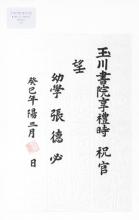 玉川書院享禮時 祝官
望
幼學 張德必
癸巳年 陽三月 日